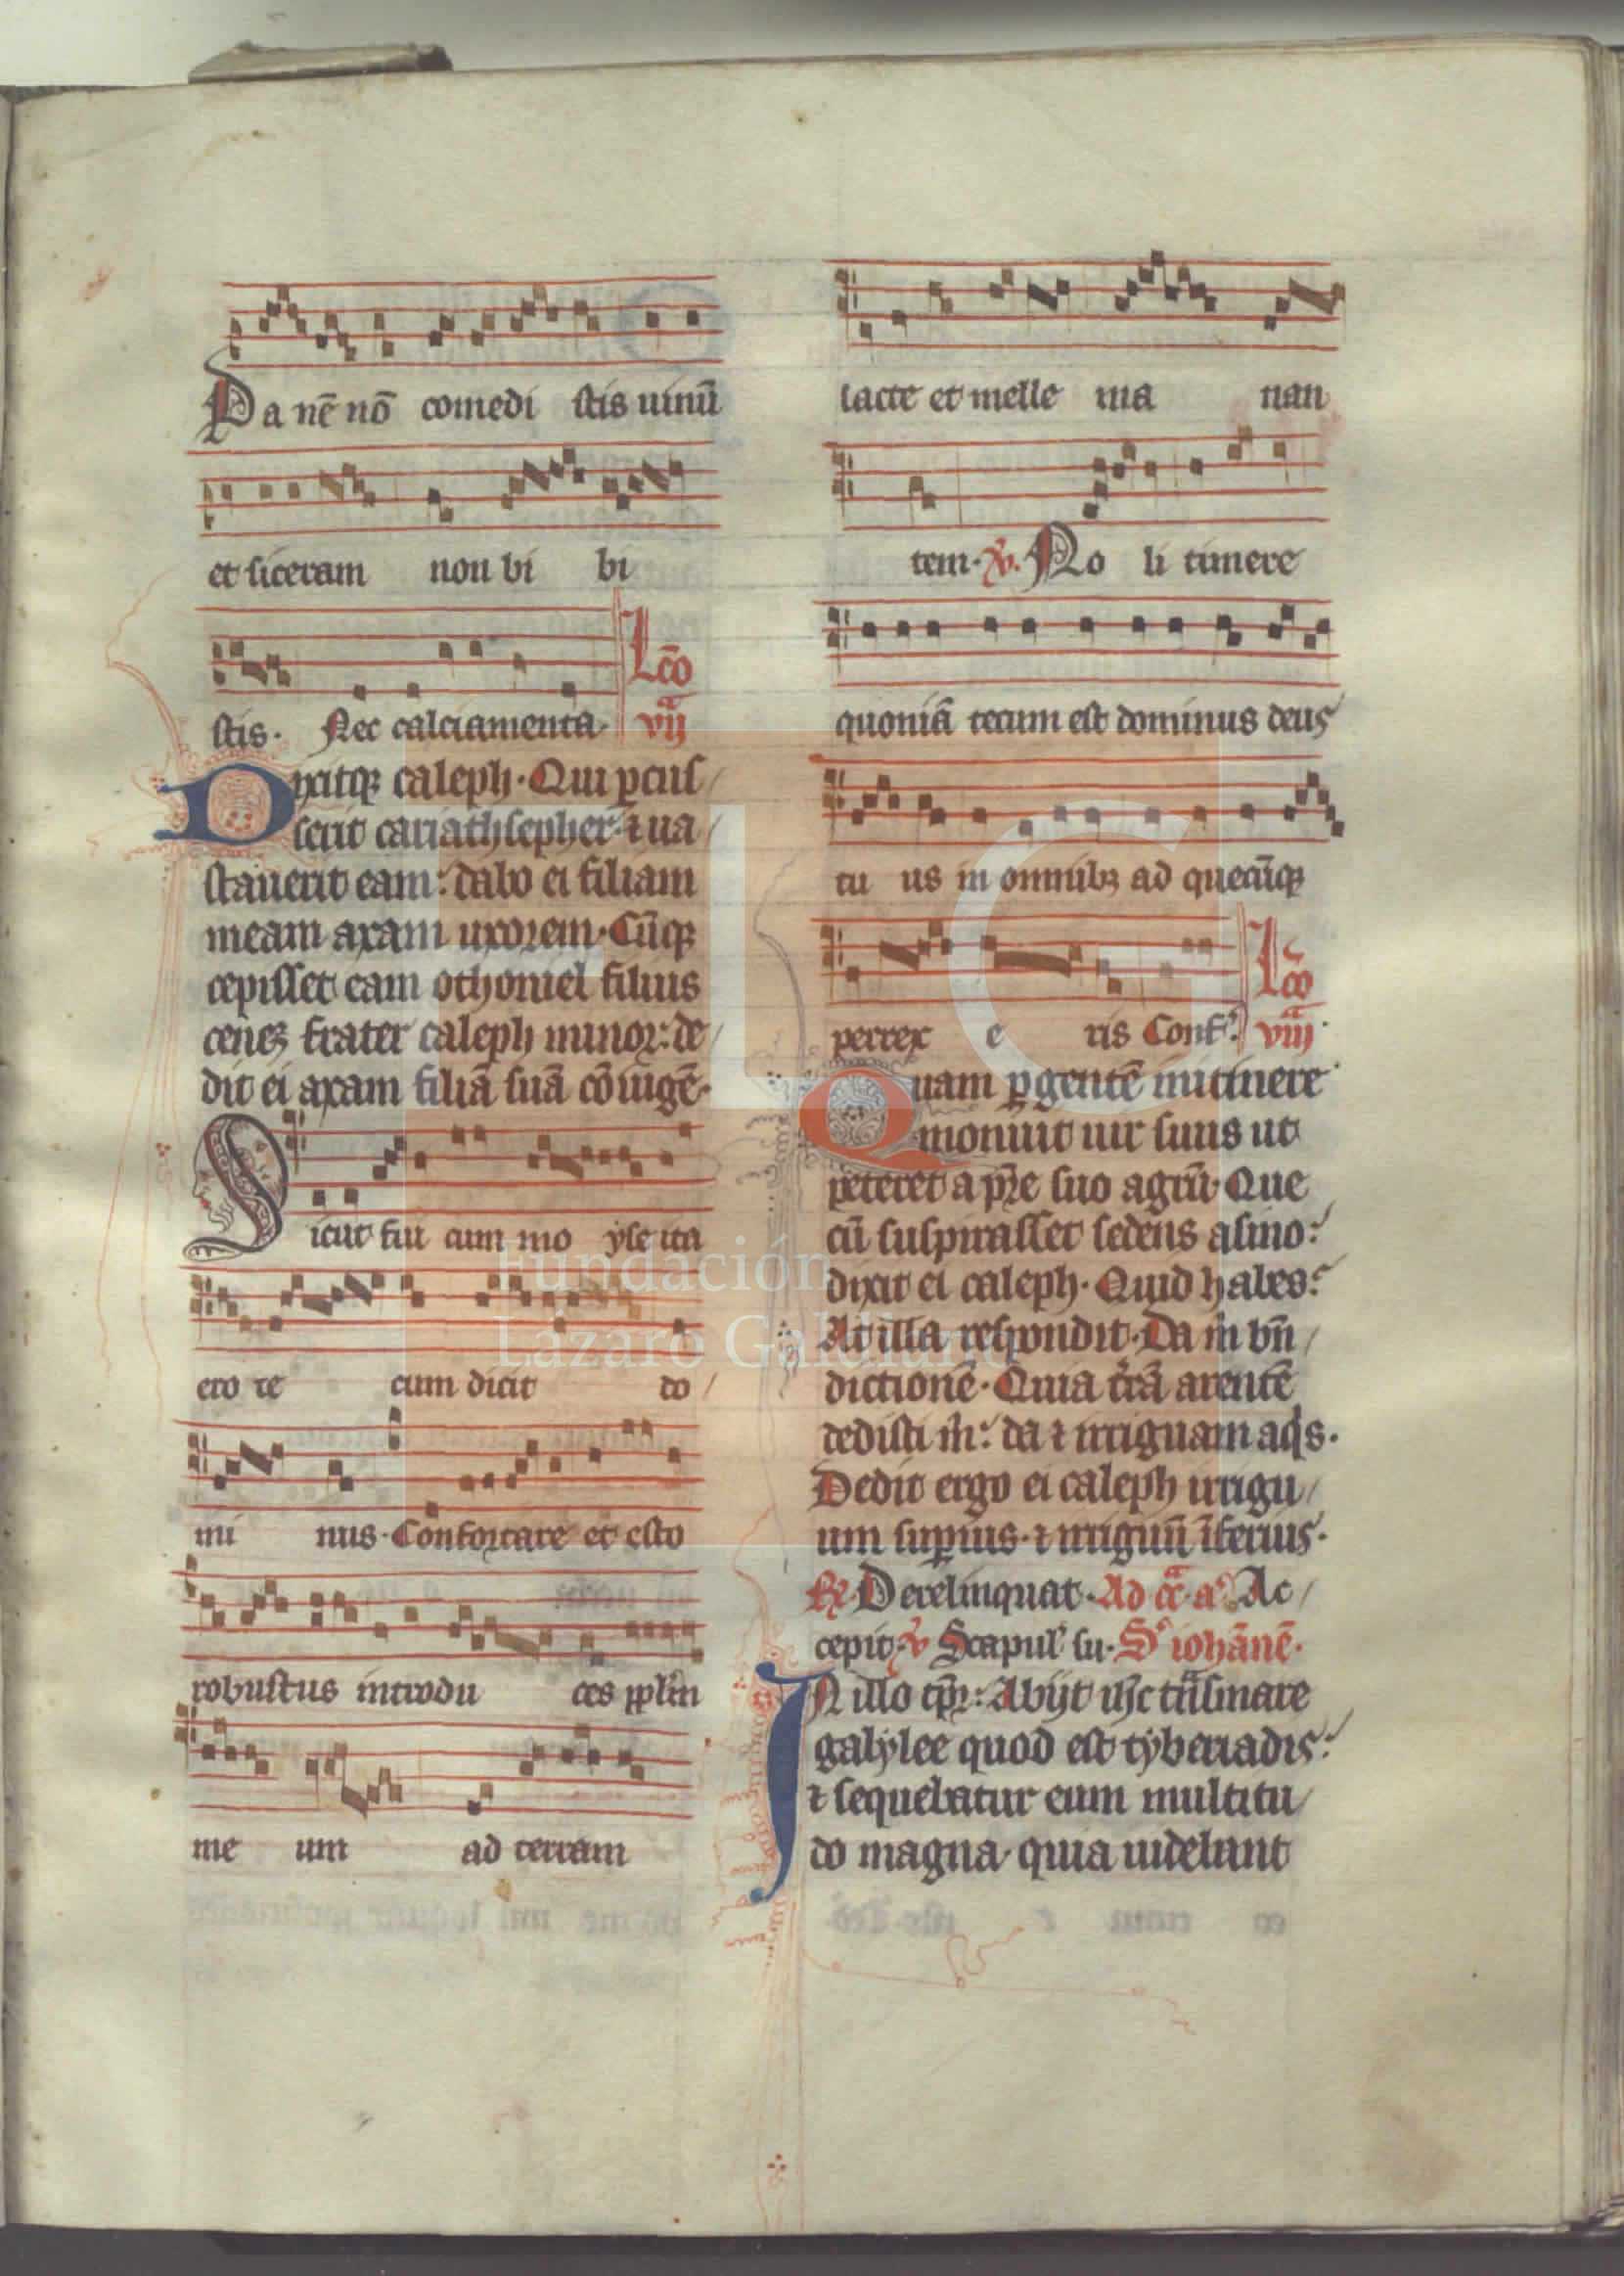 Pa nē nō comedi stis uinū
et siceram non bi bi
stis. Nec calciamenta. Lc̄o
vijᵃ
Dixitq; caleph. Qui ꝑcus/
serit cariathsepher: ⁊ ua/
stauerit eam: dabo ei filiam
meam axam uxorem. Cūq;
cepisset eam othoniel filius
cenez frater caleph minor: de/
dit ei axam filiā suā cōiugē.
Sicut fui cum mo yse ita
ero te cum dicit do/
mi nus. Confortare et esto
robustus introdu ces pplm̄
me um ad terram
lacte et melle ma nan
tem. ℣. No li timere
quoniā tecum est dominus deus
tu us in omnibꝫ ad quecūq;
perrex e ris Conf. Lc̄o
viijᵃ
Quam ꝑgentē in itinere
monuit uir suus ut
peteret a pr̄e suo agrū. Que
cū suspirasset sedens asino:
dixit ei caleph. Quid habes?
At illa respondit. Da m̄ bn̄/
dictionē. Quia t̄rā arentē
dedisti m̄: da ⁊ irriguam aq̄s.
Dedit ergo ei caleph irrigu/
um suꝑius. ⁊ irriguū īferius.
℟. Derelinquat. Ad c̄ᵃ. aᵃ. Ac/
cepit. ℣ Scapul' su. Sᵈ iohānē.
IN illo tp̄r: Abijt ih̄c trāsmare
galylee quod est tyberiadis:
⁊ sequebatur eum multitu/
do magna. quia uidebant
LG
Fundación
Lázaro Galdiano